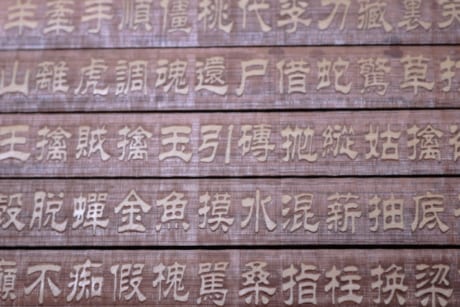 裏藏刀李代桃僵順手牽羊
草驚蛇借尸還魂調虎離山
擒姑縱拋磚引玉擒賊擒王
底抽薪混水摸魚金蟬脫殼
梁換柱指桑罵槐假痴不癲